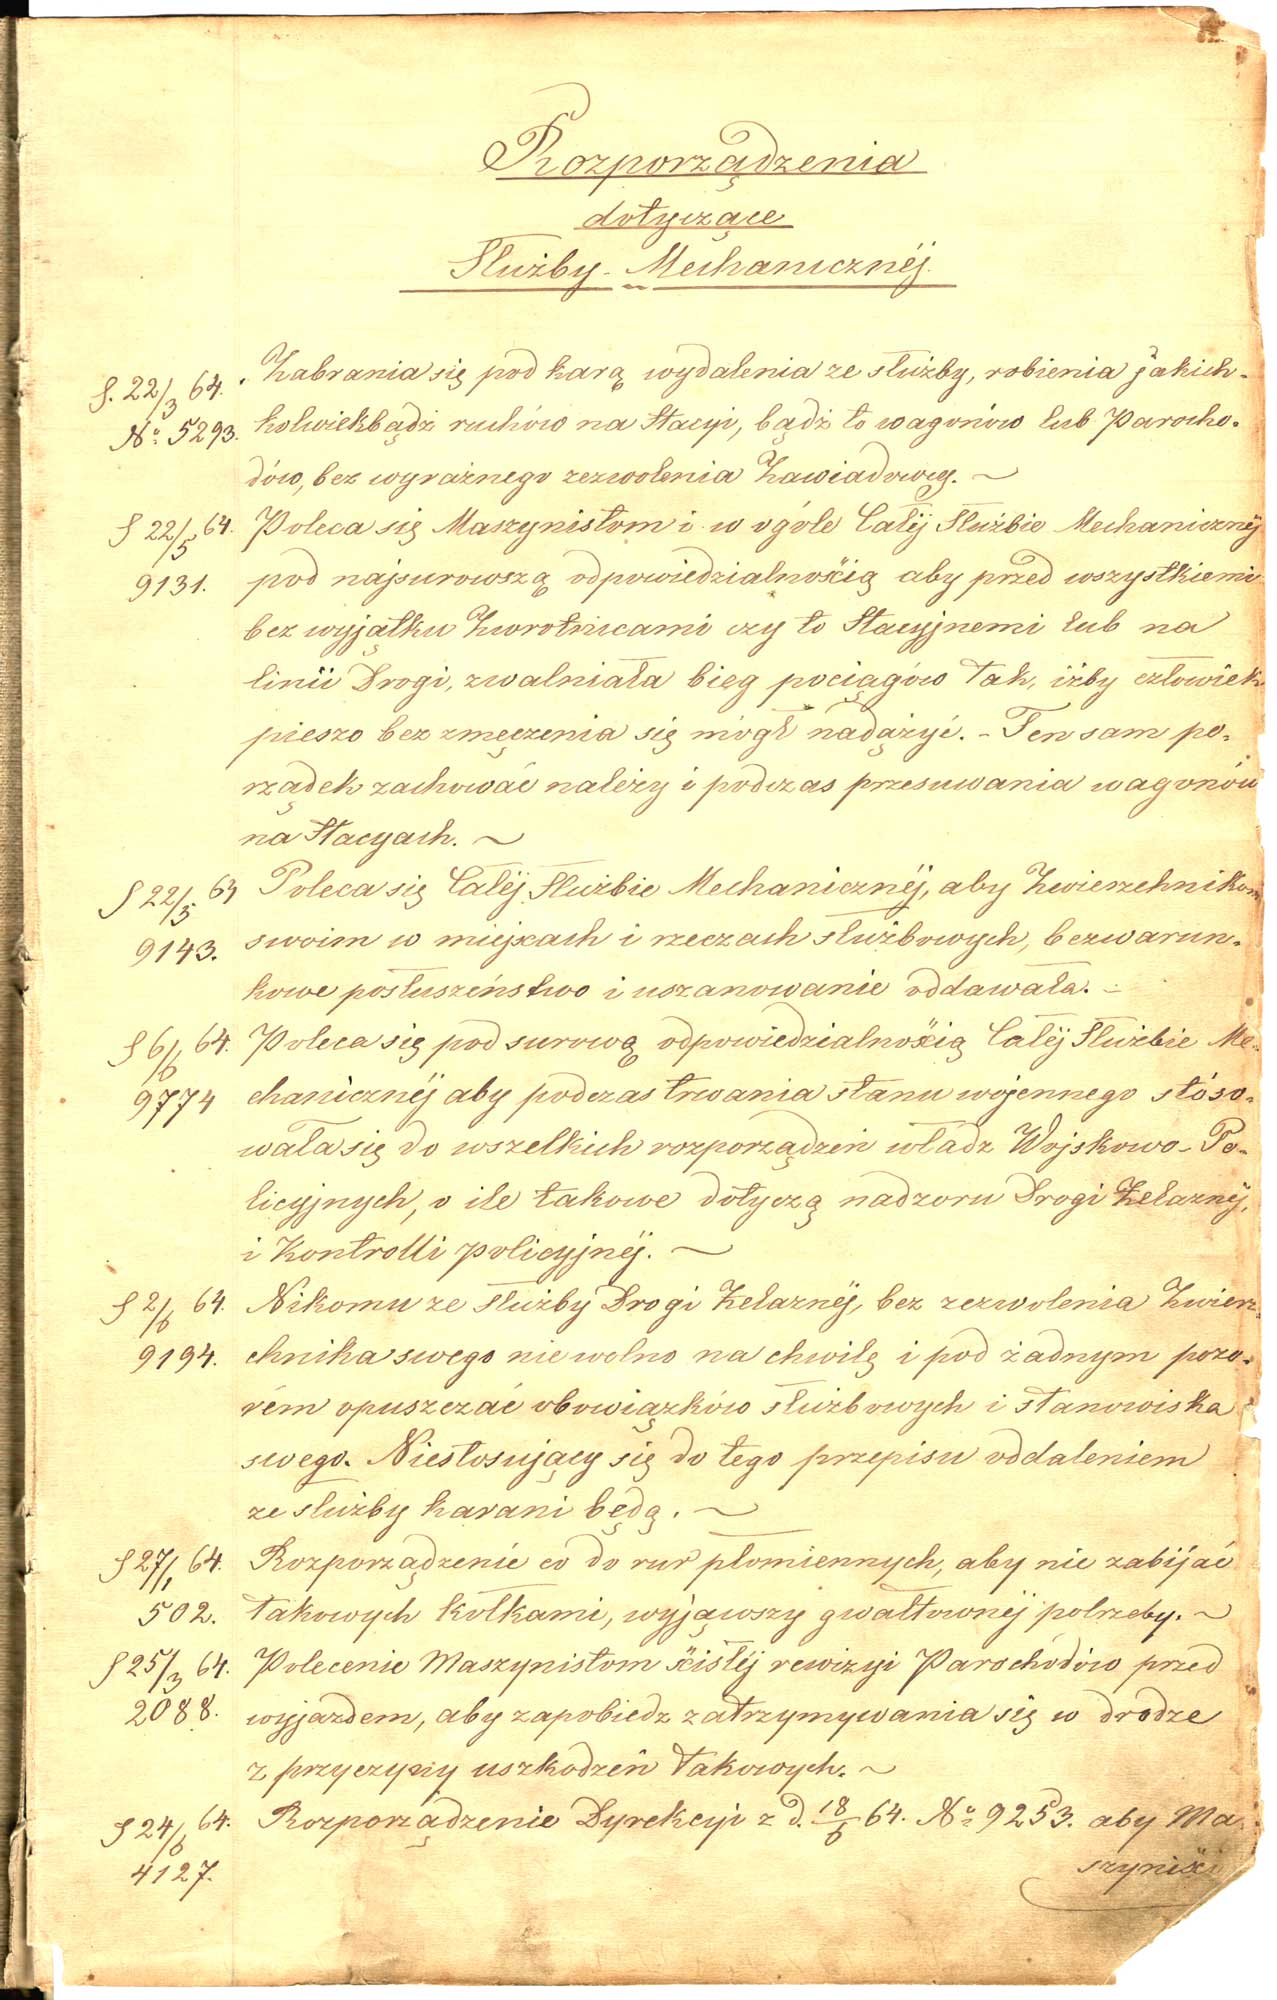 Rozporządzenia
dotyczące
Służby Mechanicznéj.
§. 22/3 64. Zabrania się pod karą wydalenia ze służby, robienia jakich-
No 5293. kolwiekbądź ruchów na Stacyi, bądź to wagonów lub Parocho-
dów, bez wyraźnego zezwolenia Zawiadowcy. ~
§ 22/5 64. Poleca się Maszynistom i w ogóle Całéj Służbie Mechanicznéj
9131. pod najsurowszą odpowiedzialnością aby przed wszystkiemi
bez wyjątku Zwrotnicami czy to Stacyjnemi lub na
linii Drogi, zwalniała bieg pociągów tak, iżby człowiek
pieszo bez zmęczenia się mógł nadążyć. - Ten sam po-
rządek zachować należy i podczas przesuwania wagonów
na Stacyach. ~
§ 22/5 64 Poleca się Całéj Służbie Mechanicznéj, aby Zwierzchnikom
9143. swoim w miejscach i rzeczach służbowych, bezwarun-
kowe posłuszeństwo i uszanowanie oddawała. -
§ 6/6 64. Poleca się pod surową odpowiedzialnością Całéj Służbie Me-
9774 chanicznéj aby podczas trwania stanu wojennego stóso-
wała się do wszelkich rozporządzeń władz Wojskowo-Po-
licyjnych, o ile takowe dotyczą nadzoru Drogi Żelaznéj,
i Kontrolli policyjnéj. ~
§ 2/6 64. Nikomu ze Służby Drogi Żelaznéj, bez zezwolenia Zwierz-
9194. chnika swego nie wolno na chwilę i pod żadnym pozo-
rém opuszczać obowiązków służbowych i stanowiska
swego. Niestosujący się do tego przepisu oddaleniem
ze służby karani będą. ~
§ 27/1 64. Rozporządzenie co do rur płomiennych, aby nie zabijać
502. takowych kołkami, wyjąwszy gwałtownéj potrzeby. ~
§ 25/3 64. Polecenie Maszynistom ścisłéj rewizyi Parochodów przed
2088. wyjazdem, aby zapobiedz zatrzymywania się w drodze
z przyczyny uszkodzeń takowych. ~
§ 24/6 64. Rozporządzenie Dyrekcyi z d. 18/6 64. No 9253. aby Ma-
4127. szyniści